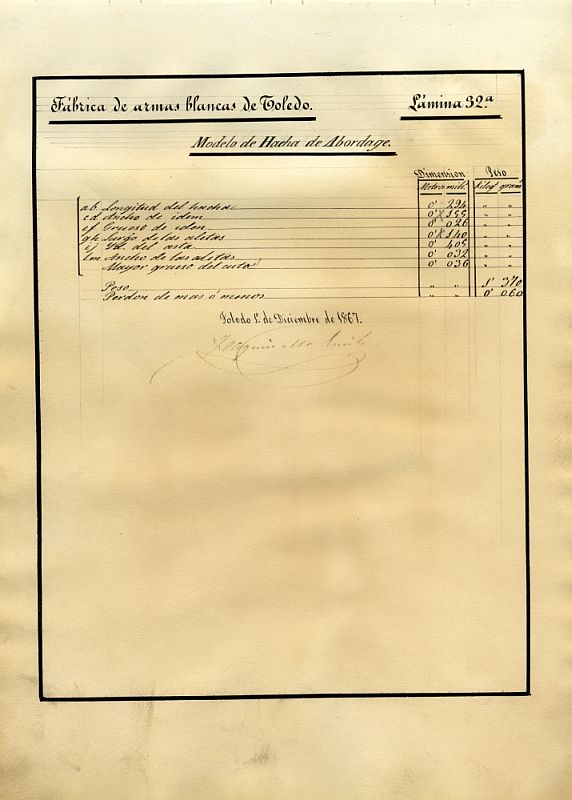 Fábrica de armas blancas de Toledo. Lámina 32.ª
Modelo de Hacha de Abordage.
Dimension Peso
Metros mili.s Kilogs gram.s
ab Longitud del hacha 0' 294 " "
cd Ancho de idem 0' 155 " "
ef Grueso de idem 0' 026 " "
gh Largo de las aletas 0' 140 " "
ij Id. del asta 0' 405 " "
lm Ancho de las aletas 0' 032 " "
Mayor grueso del asta 0' 036 " "
Peso " " 1' 370
Perdon de mas ó menos " " 0' 060
Toledo 1º de Diciembre de 1867.
Joaquin